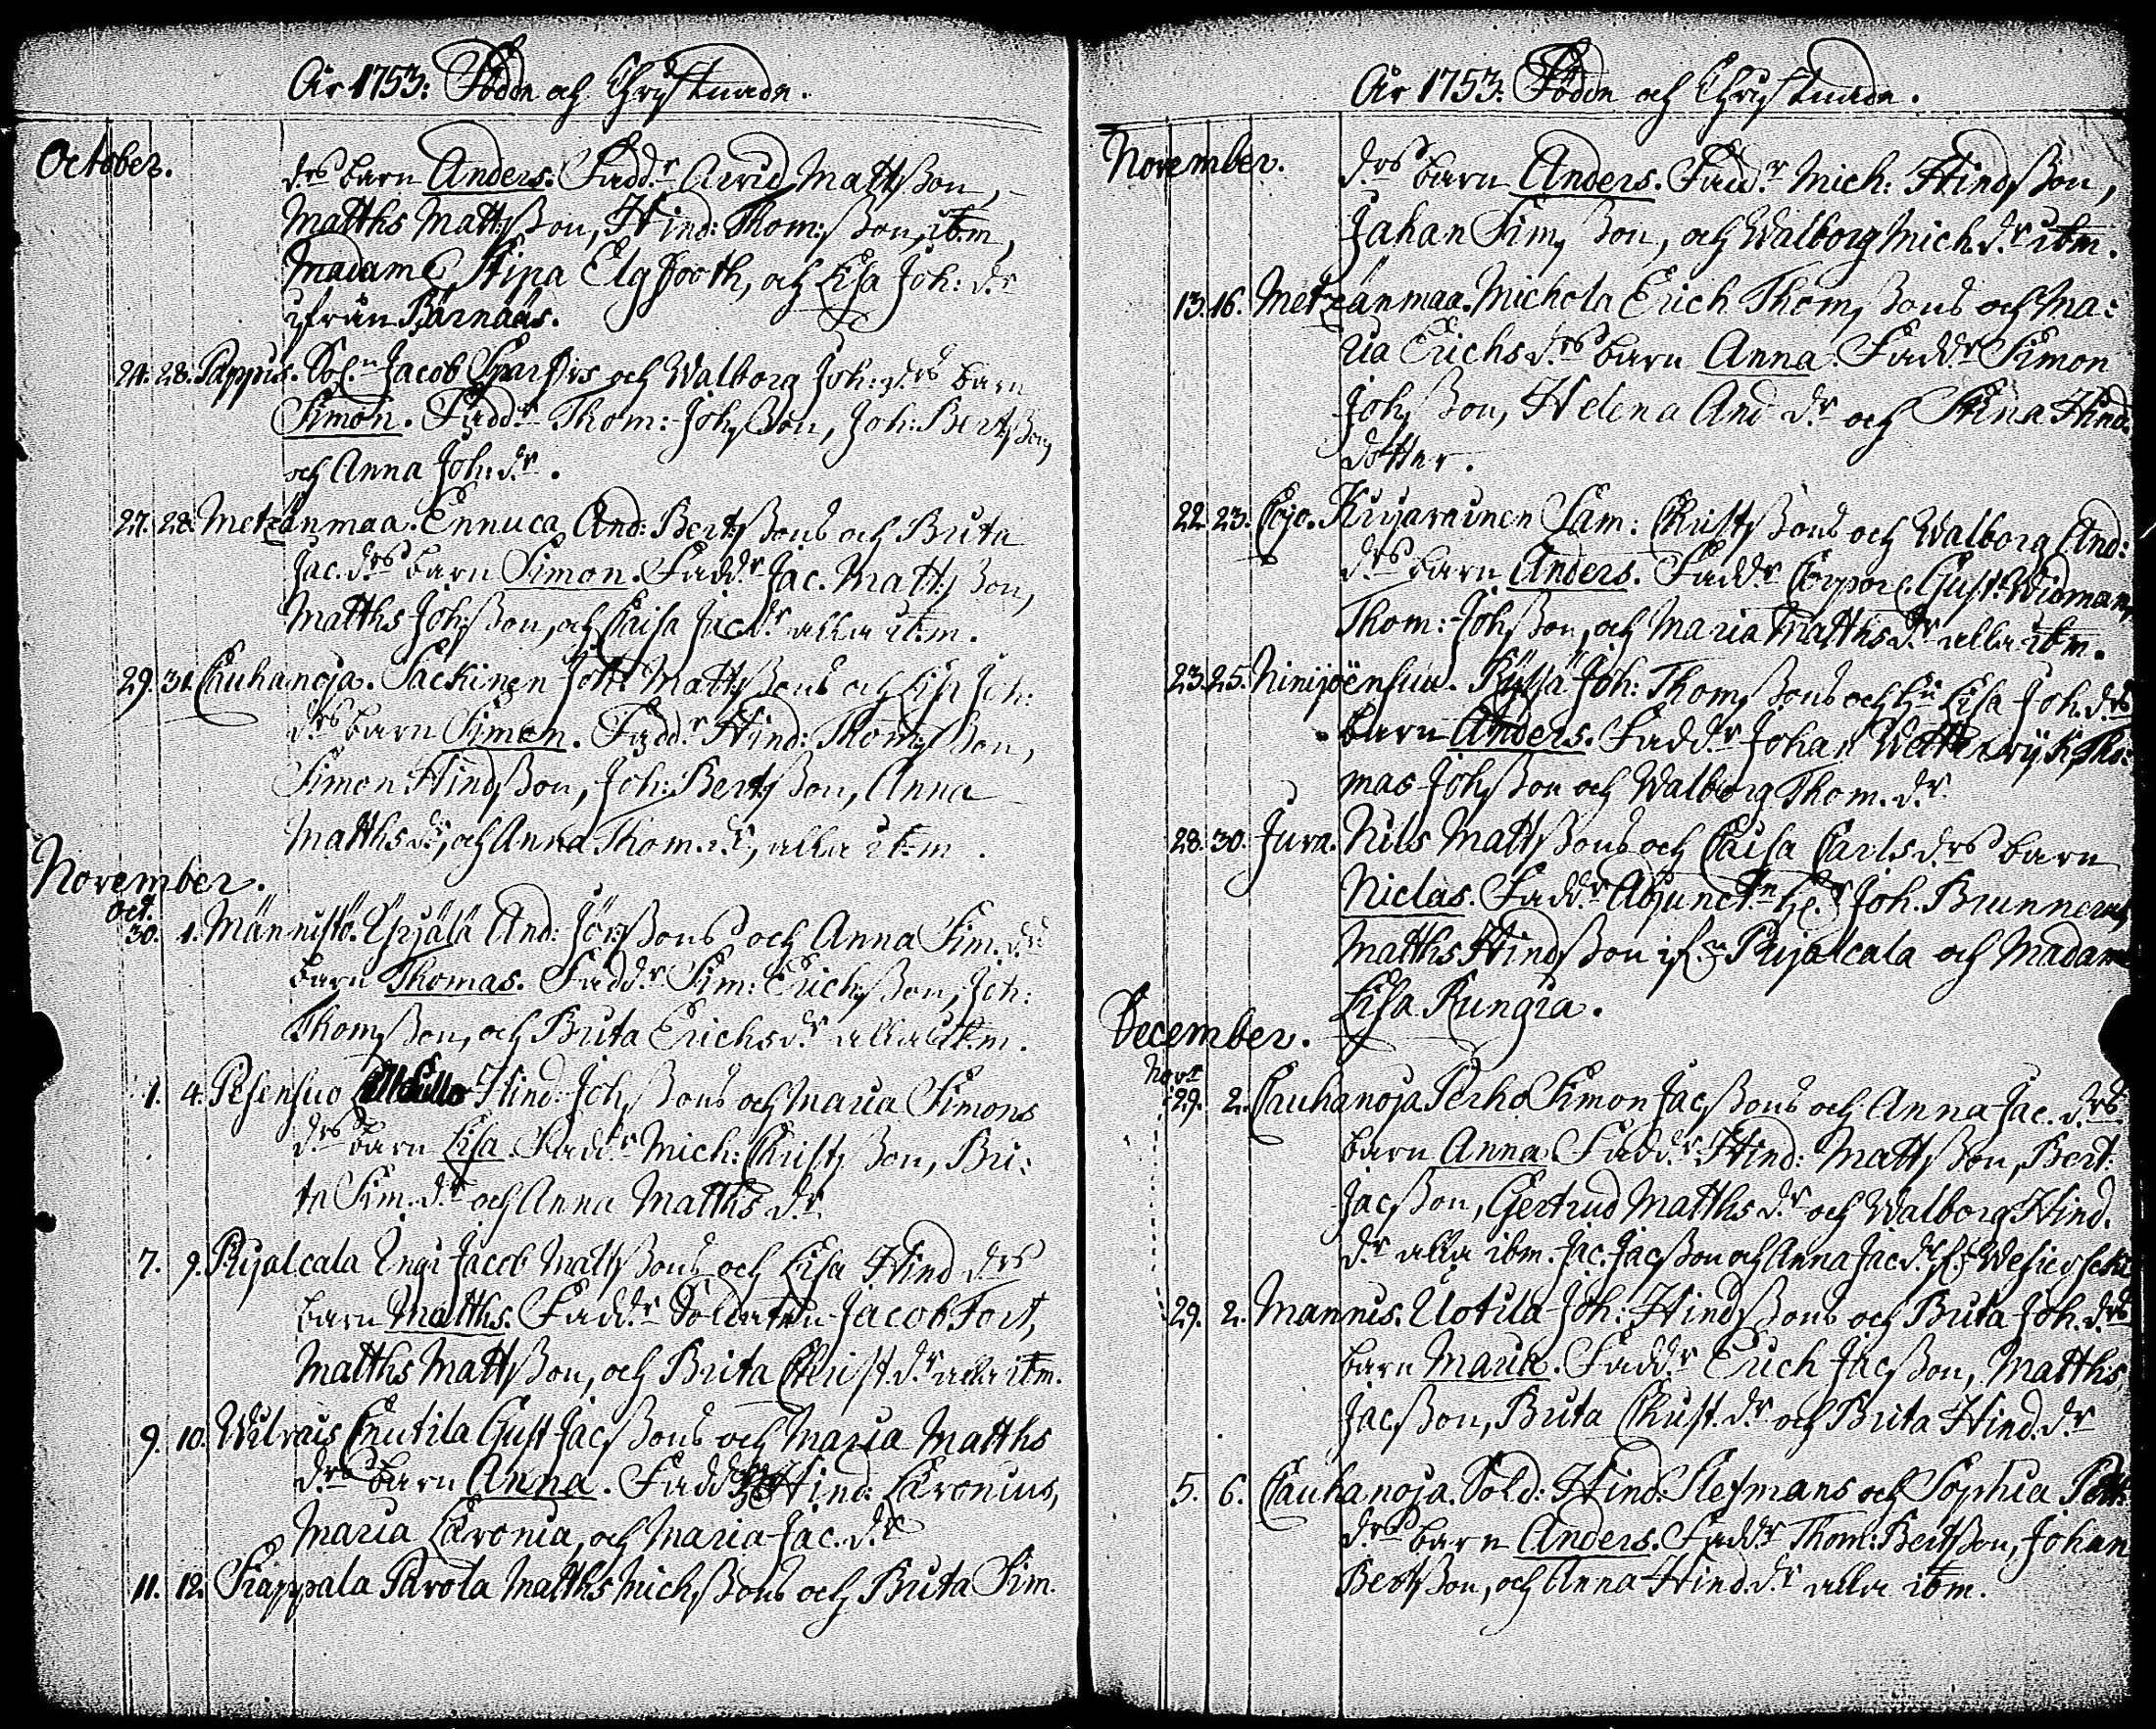 År 1753: Födde och Chrystnade.
October.
d:rs barn Anders. Fadd:r Arvid Mattsson,
Matths Mattsson, Hind: Thom:sson, ibm,
Madame Stina Elgfooth, och Lisa Joh: d:r
ifrån Bärnäås.
24. 28. Pappus. Sol:n Jacob Sparfvs och Walborg Joh: d:rs barn
Simon. Fadd:r Thom: Johsson, Joh: Bertsson,
och Anna Joh: d:r.
27. 28. Metzänmaa. Ennuca And: Bertssons och Brita
Jac. d:rs barn Simon. Fadd:r Jac. Mattsson,
Matths Johsson, och Caisa Jac d:r alla ibm.
29. 31. Cauhanoja. Säckinen Joh: Mattssons och Lisa Joh:
d:rs barn Simon. Fadd:r Hind: Thomsson,
Simon Hindsson, Joh: Bertsson, Anna
Matths d:r, och Anna Thom. d:r, alla ibm.
November.
Oct.
30. 1. Männistö. Yrjälä And: Jörssons och Anna Sim. d:rs
barn Thomas. Fadd:r Sim: Erichsson, Joh:
Thomsson, och Brita Erichs d:r alla ibm.
1. 4. Pesensuo Hind: Johssons och Maria Simons
d:rs barn Lisa. Fadd:r Mich: Christsson, Bri:
ta Sim. d:r och Anna Matths d:r.
7. 9. Rijalcala Engi Jacob Mattssons och Lisa Hind d:rs
barn Matths. Fadd:r Soldaten Jacob Fort,
Matths Mattsson, och Brita Christ. d:r alla ibm.
9. 10. Wilvais Cnutila Gust Jacssons och Maria Matths
d:rs barn Anna. Fadd Hind: Caronius,
Maria Caronia, och Maria Jac. d:r
11. 12. Siappala Parola Matths Michssons och Brita Sim.
År 1753: Födde och Chrystnade.
November.
d:rs barn Anders. Fadd:r Mich: Hindsson,
Jahan Simsson, och Walborg Mich d:r ibm.
13. 16. Metzänmaa. Michola Erich Thomssons och Ma:
ria Erichs d:rs barn Anna. Fadd:r Simon
Johsson, Helena And d:r och Stina Hind
dotter.
22. 23. Cojo. Kujarainen Sam: Christssons och Walborg And:
d:rs barn Anders. Fadd:r Corporl. Gust: Widman,
Thom: Johsson, och Maria Matths d:r alla ibm.
23. 25. Ninijoensuu. Kylä Joh: Thomssons och Lisa Joh. d:rs
barn Anders. Fadd:r Johan Wetterwijk, Tho:
mas Johsson och Walborg Thom. d:r.
28. 30. Juva. Nils Mattssons och Caisa Carls d:rs barn
Niclas. Fadd:r Adjunct:n H:r Joh. Brunnerus,
Matths Hindsson if:n Rijalcala och Madame
Lisa Rungia.
December.
Nov:r
29. 2. Cauhanoja Perho Simon Jacssons och Anna Jac. d:rs
barn Anna. Fadd:r Hind: Mattsson, Bert:
Jacsson, Gertrud Matths d:r och Walborg Hind.
d:r alla ibm. Jac. Jacsson och Anna Jac d:r
29. 2. Mannis. Uotila Joh: Hindssons och Brita Joh. d:rs
barn Maria. Fadd:r Erich Jacsson, Matths
Jacsson, Brita Christ. d:r och Brita Hind. d:r
5. 6. Cauhanoja. Sold: Hind: Slefmans och Sophia
d:rs barn Anders. Fadd:r Thom: Bertsson, Johan
Bertsson, och Anna Hind. d:r alla ibm.